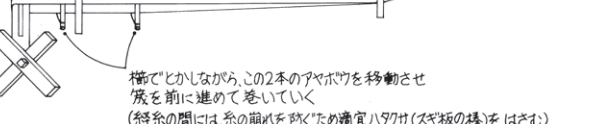 櫛でとかしながら、この2本のアヤボウを移動させ
筬を前に進めて巻いていく
(経糸の間には 糸の崩れを防ぐため適宜ハタクサ(スギ板の様)を はさむ)